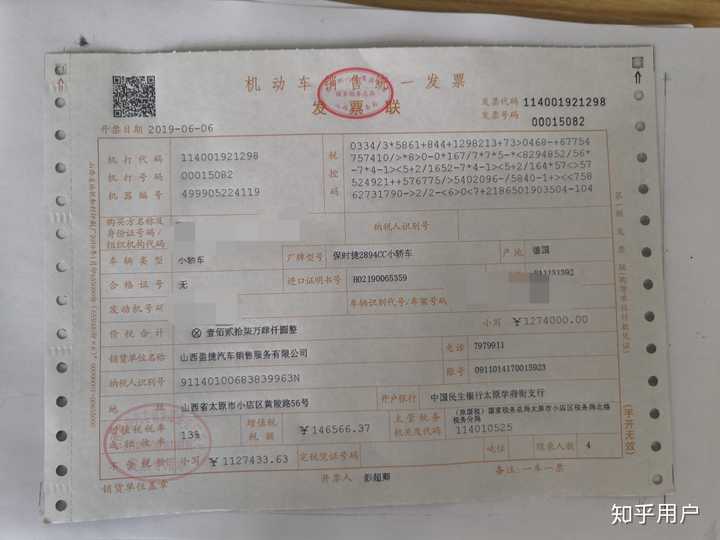 机动车销售统一发票
发票联
发票代码 114001921298
发票号码 00015082
开票日期 2019-06-06
机打代码 114001921298
机打号码 00015082
机器编号 499905224119
税控码
0334/3*5861+844+1298213+73>0468-+67754
757410/>*8>0-0*167/7*7*5-*<8294852/56*
-7*4-1><5+2/1652-7*4-1><5+2/164*57<>57
524921++576775/>5402096-/5840-1+><<758
62731790->2/2-<6>0<7+2186501903504-104
购买方名称及
身份证号码/
组织机构代码
纳税人识别号
车辆类型 小轿车 厂牌型号 保时捷2894CC小轿车 产地 德国
合格证号 无 进口证明书号 H02190065359
发动机号码 车辆识别代号/车架号码
价税合计 ⊗壹佰贰拾柒万肆仟圆整 小写 ¥1274000.00
销货单位名称 山西盈捷汽车销售服务有限公司 电话 7979911
纳税人识别号 91140100683839963N 账号 0911014170015923
地址 山西省太原市小店区黄陵路56号 开户银行 中国民生银行太原学府街支行
增值税税率或征收率 13% 增值税税额 ¥146566.37 主管税务机关及代码 (原国税)国家税务总局太原市小店区税务局北格税务分局 114010525
不含税价 小写 ¥1127433.63 完税凭证号码 吨位 限乘人数 4
销货单位盖章 开票人 彭超卿 备注:一车一票
第一联 发票联(购货单位付款凭证)
(手开无效)
知乎用户